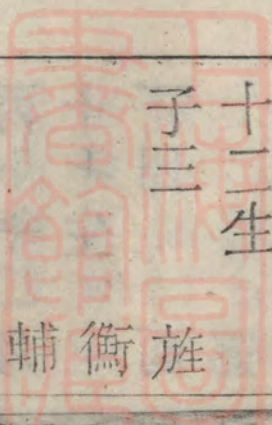 十二生
子三
旌
衡
輔